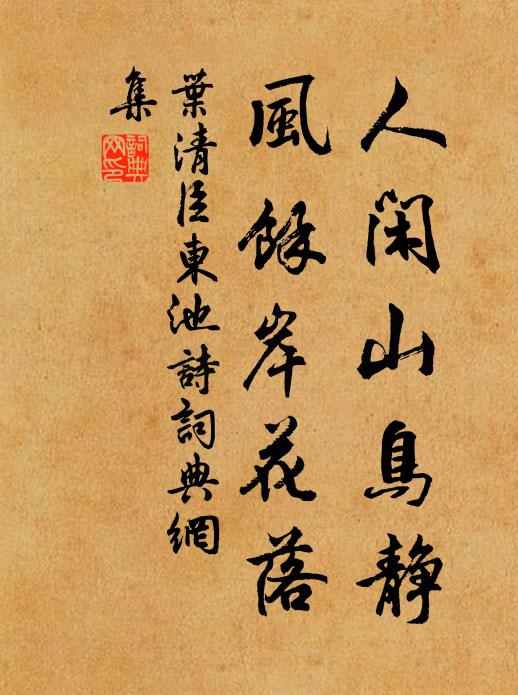 人閑山鳥靜
風餘岸花落
葉清臣東池詩詞典網
集
詞典網印